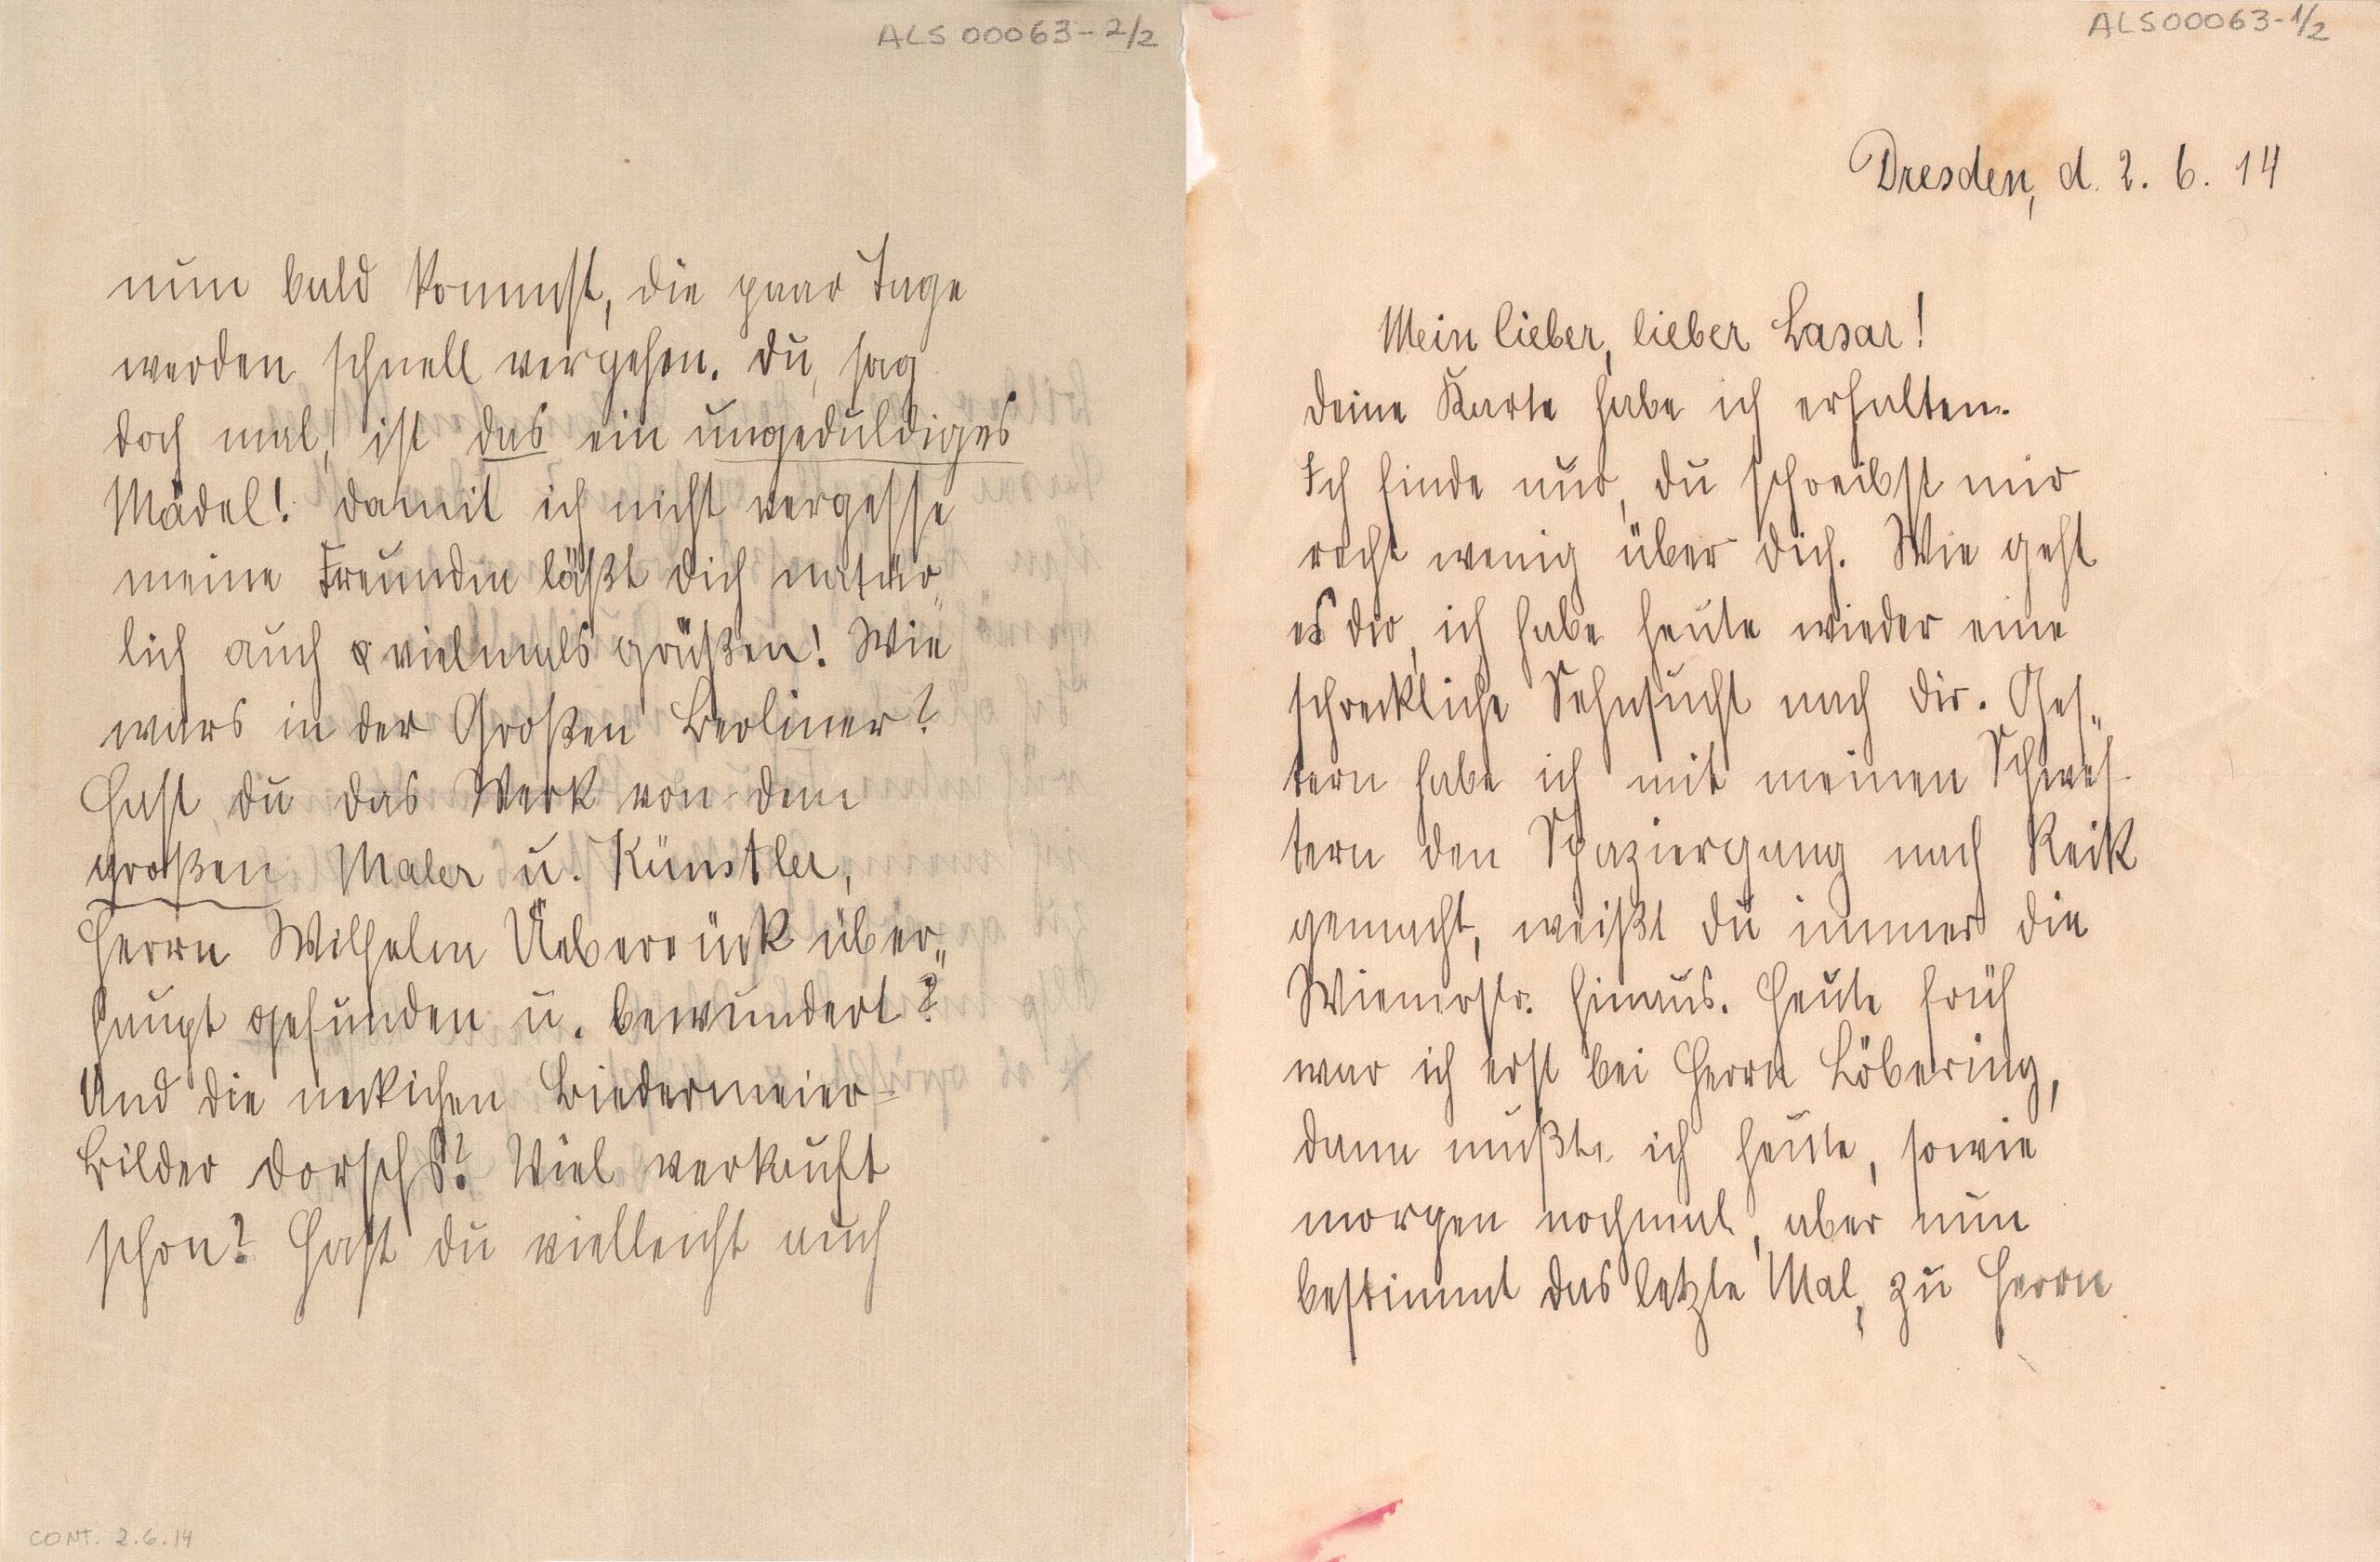 ALS00063-1/2
Dresden, d. 2. 6. 14
Mein lieber, lieber Lasar!
Deine Karte habe ich erhalten.
Ich finde nur, du schreibst mir
recht wenig über dich. Wie geht
es dir, ich habe heute wieder eine
schreckliche Sehnsucht nach dir. Ges„
tern habe ich mit meinen Schwes-
tern den Spaziergang nach Reik
gemacht, weißt du immer die
Wienerstr. hinaus. Heute früh
war ich erst bei Herrn Löbering,
dann mußte ich heute, sowie
morgen nochmal, aber nun
bestimmt das letzte Mal, zu Herrn
ALS 00063-2/2
nun bald kommst, die paar Tage
werden schnell vergehen. Du, sag
doch mal, ist das ein ungeduldiges
Mädel! Damit ich nicht vergesse
meine Freundin läßt dich natür„
lich auch vielmals grüßen! Wie
wars in der Großen Berliner?
Hast du das Werk von dem
großen Maler u. Künstler,
Herrn Wilhelm Ueberrück über„
haupt gefunden u. bewundert?
Und die neckichen Biedermeier-
Bilder Dorschs? Viel verkauft
schon? Hast du vielleicht auch
CONT. 2.6.14